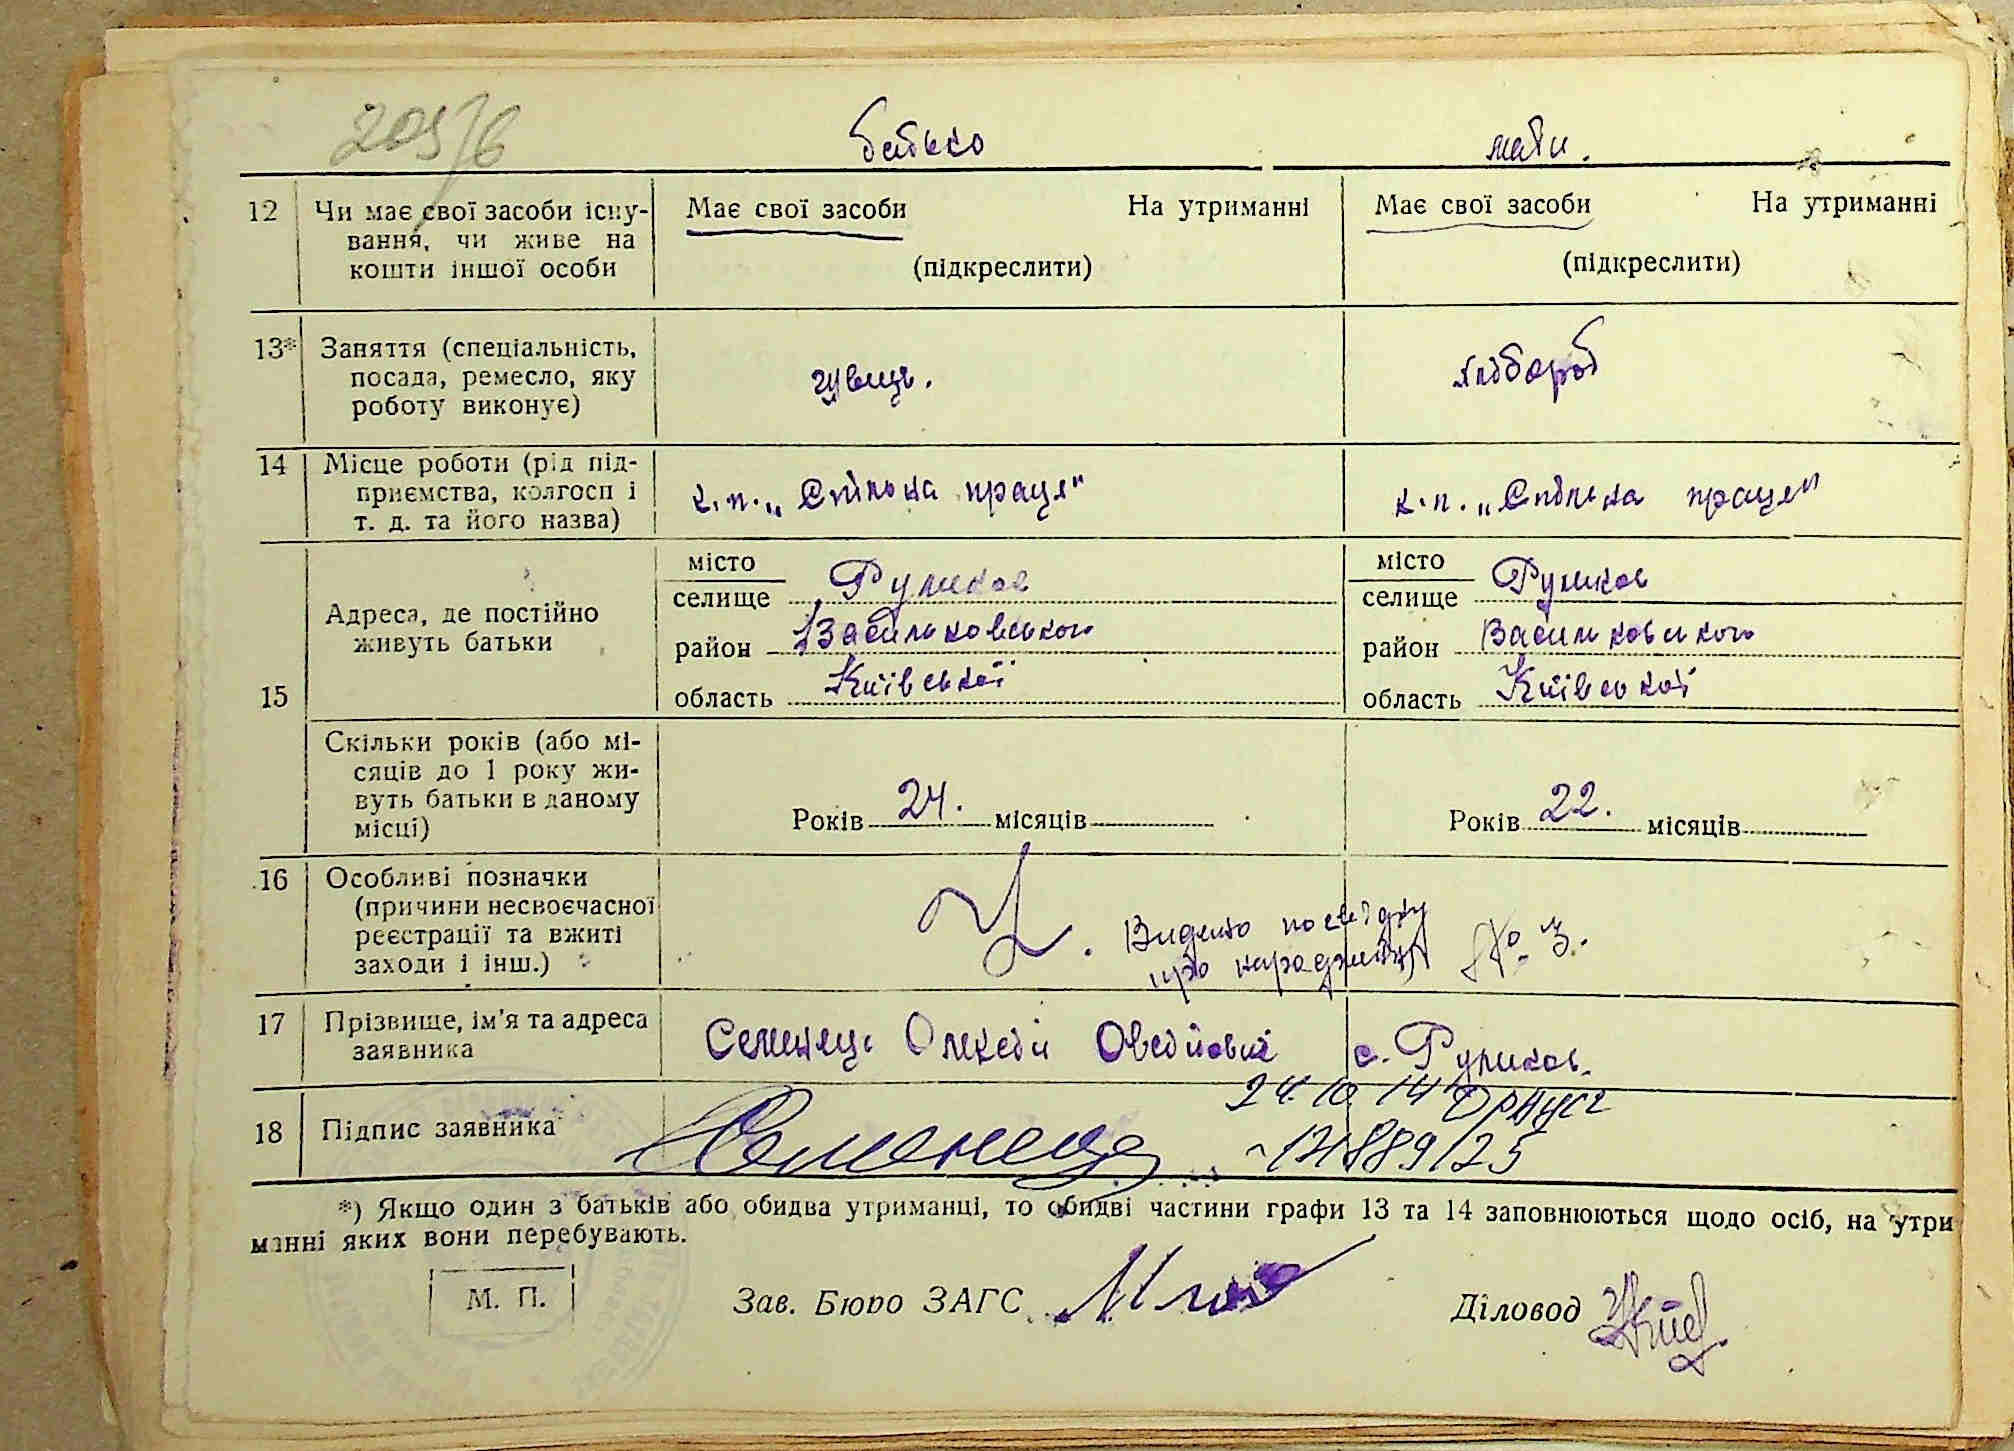 205/6
батько мати.
12 Чи має свої засоби існу- Має свої засоби На утриманні Має свої засоби На утриманні
вання, чи живе на
кошти іншої особи (підкреслити) (підкреслити)
13* Заняття (спеціальність,
посада, ремесло, яку швець. хлібороб
роботу виконує)
14 Місце роботи (рід під-
приємства, колгосп і к.п. „Спільна праця" к.п. „Спільна праця"
т. д. та його назва)
15 Адреса, де постійно
живуть батьки
місто місто
селище Руликов селище Руликов
район Васильковського район Васильковського
область Київської область Київської
Скільки років (або мі-
сяців до 1 року жи-
вуть батьки в даному
місці) Років 24. місяців Років 22. місяців
16 Особливі позначки
(причини несвоєчасної Видано посвідку
реєстрації та вжиті про народження № 3.
заходи і інш.)
17 Прізвище, ім'я та адреса
заявника Семенець Олексій Овсійович с. Руликов.
24 10 14
18 Підпис заявника Семенець
*) Якщо один з батьків або обидва утриманці, то обидві частини графи 13 та 14 заповнюються щодо осіб, на утри
манні яких вони перебувають.
М. П. Зав. Бюро ЗАГС Діловод